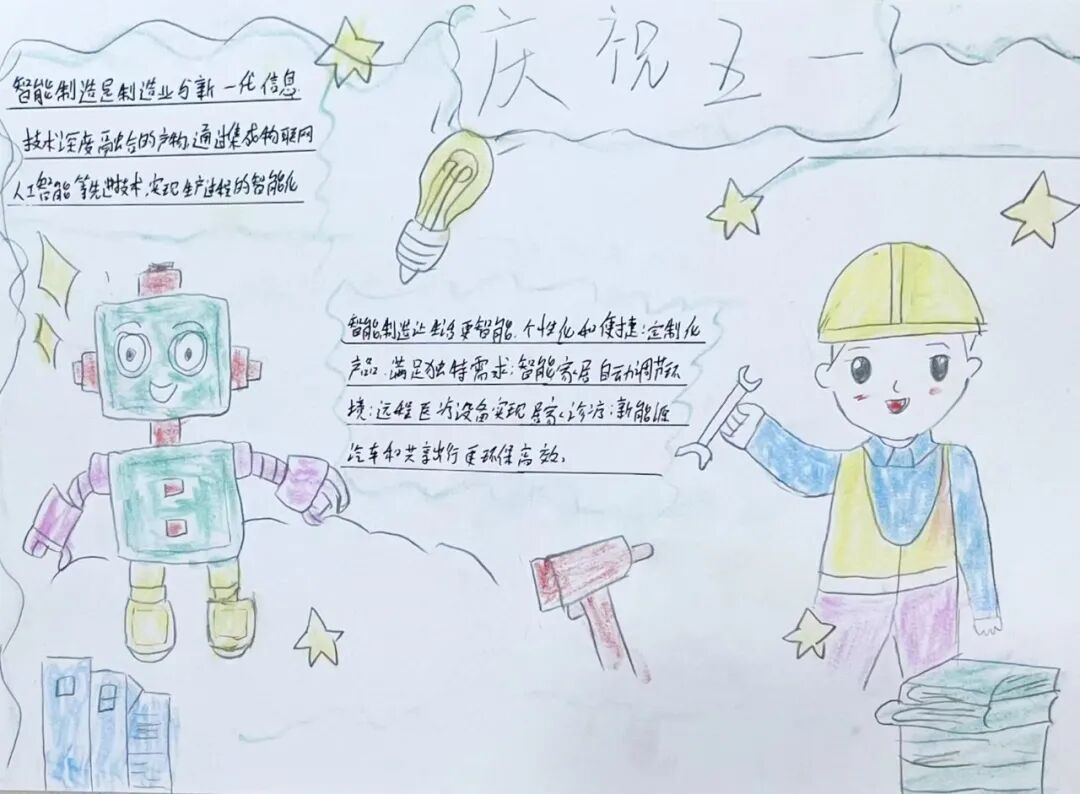 庆祝五一
智能制造是制造业与新一代信息
技术深度融合的产物,通过集成物联网
人工智能等先进技术,实现生产过程的智能化
智能制造让生活更智能、个性化和便捷:定制化
产品,满足独特需求;智能家居自动调节环
境;远程医疗设备实现居家诊疗;新能源
汽车和共享出行更环保高效。